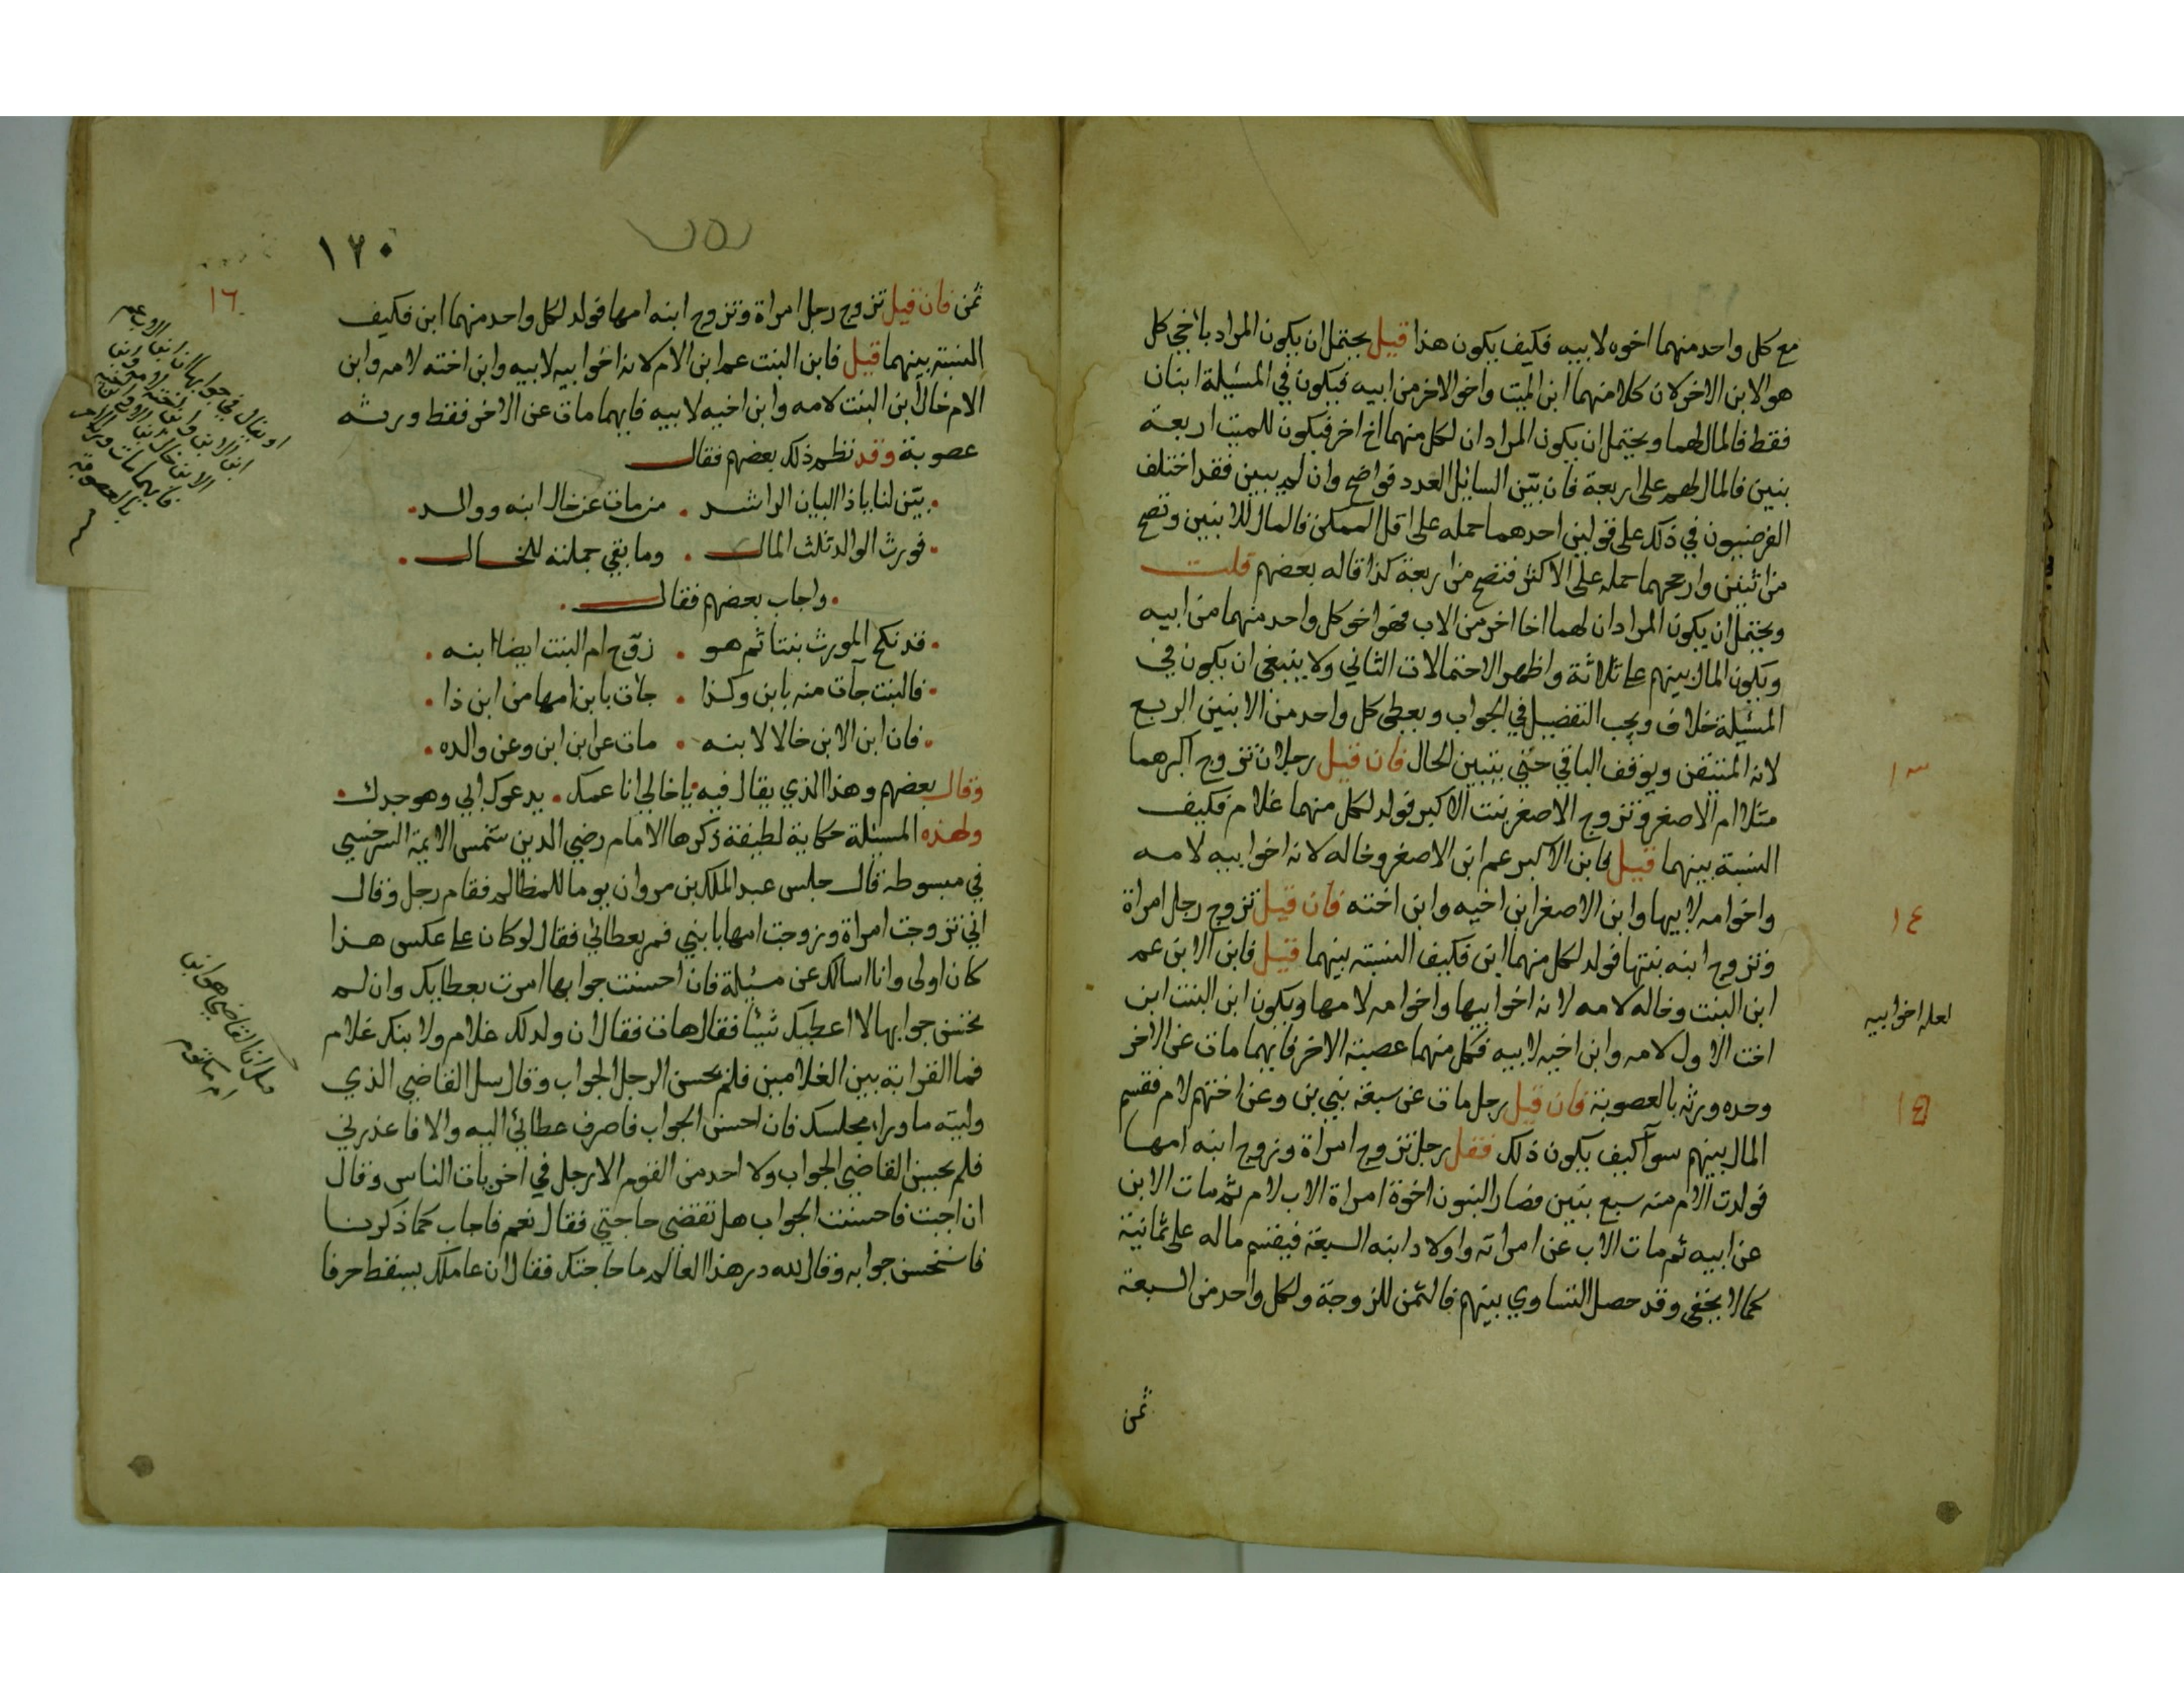 مع كل واحد منهما اخوه لابيه فكيف يكون هذا قيل يحتمل ان يكون المراد باخي كل
هو الابن الاخر لان كلا منهما ابن الميت واخو الاخر من ابيه فيكون في المسئلة ابنان
فقط فالمال لهما ويحتمل ان يكون المراد ان لكل منهما اخ اخر فيكون للميت اربعة
بنين فالمال لهم على اربعة فان بيّن السائل العدد فواضح وان لم يبين فقد اختلف
الفرضيون في ذلك على قولين احدهما حمله على اقل الممكن فالمال للابنين وتصح
من اثنين وارجحهما حمله على الاكثر فتصح من اربعة كذا قاله بعضهم قلت
ويحتمل ان يكون المراد ان لهما اخا اخر من الاب فهو اخو كل واحد منهما من ابيه
ويكون المال بينهم على ثلاثة واظهر الاحتمالات الثاني ولا ينبغي ان يكون في
المسئلة خلاف ويجب التفصيل في الجواب ويعطى كل واحد من الابنين الربع
لانه المتيقن ويوقف الباقي حتى يتبين الحال فان قيل رجلان تزوج اكبرهما
مثلا ام الاصغر وتزوج الاصغر بنت الاكبر فولد لكل منهما غلام فكيف
النسبة بينهما قيل فابن الاكبر عم ابن الاصغر وخاله لانه اخو ابيه لامه
واخو امه لابيها وابن الاصغر ابن اخيه وابن اخته فان قيل تزوج رجل امراة
وتزوج ابنه بنتها فولد لكل منهما ابن فكيف النسبة بينهما قيل فابن الابن عم
ابن البنت وخاله لامه لانه اخو ابيها واخو امه لامها ويكون ابن البنت ابن
اخت الاول لامه وابن اخيه لابيه فكل منهما عصبة الاخر فايهما مات عن الاخر
وحده ورثه بالعصوبة فان قيل رجل مات عن سبعة بني بن وعن اختهم لام فقسم
المال بينهم سوآ كيف يكون ذلك فقل رجل تزوج امراة وزوج ابنه امها
فولدت الام منه سبع بنين فصار البنون اخوة امراة الاب لام ثم مات الابن
عن ابيه ثم مات الاب عن امراته واولاد ابنه السبعة فيقسم ماله على ثمانية
كما لا يخفى وقد حصل التساوي بينهم فالثمن للزوجة ولكل واحد من السبعة
ثمن
١٣
١٤
لعله اخو ابيه
١٥
١٢٠
١٦
ثمن فان قيل تزوج رجل امراة وتزوج ابنه امها فولد لكل واحد منهما ابن فكيف
النسبة بينهما قيل فابن البنت عم ابن الام لانه اخو ابيه لابيه وابن اخته لامه وابن
الام خال ابن البنت لامه وابن اخيه لابيه فايهما مات عن الاخر فقط ورثه
عصوبة وقد نظم ذلك بعضهم فقال
بيّن لنا يا ذا البيان الراشد . من مات عن خال ابنه ووالد
فورث الوالد ثلث المال . وما بقي جملته للخال
واجاب بعضهم فقال
قد نكح المورث بنتا ثم هو . زوّج ام البنت ايضا ابنه
فالبنت جآت منه بابن وكذا . جآت بابن امها من ابن ذا
فان ابن الابن خالا لابنه . مات عن ابن ابن وعن والده
وقال بعضهم وهذا الذي يقال فيه يا خالي انا عمك . يدعوك ابي وهو جدك
ولهذه المسئلة حكاية لطيفة ذكرها الامام رضي الدين شمس الايمة السرخسي
في مبسوطه قال جلس عبد الملك بن مروان يوما للمظالم فقام رجل وقال
اني تزوجت امراة وزوجت امها بابني فمر بعطائي فقال لو كان على عكس هذا
كان اولى وانا اسالك عن مسئلة فان احسنت جوابها امرت بعطايك وان لم
تحسن جوابها لا اعطيك شيئا فقال هات فقال ان ولد لك غلام ولابنك غلام
فما القرابة بين الغلامين فلم يحسن الرجل الجواب وقال سل القاضي الذي
وليته ما وراء مجلسك فان احسن الجواب فاصرف عطائي اليه والا فاعذرني
فلم يحسن القاضي الجواب ولا احد من القوم الا رجل في اخريات الناس وقال
ان اجبت فاحسنت الجواب هل تقضي حاجتي فقال نعم فاجاب كما ذكرنا
فاستحسن جوابه وقال لله در هذا العالم ما حاجتك فقال ان عاملك يسقط حرفا